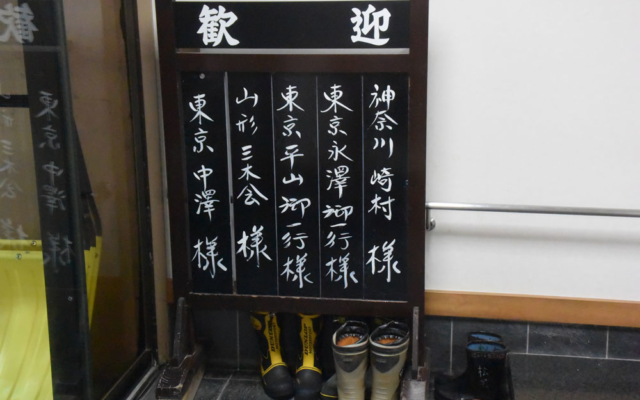 歓 迎
神奈川 崎村 様
東京 永澤 御一行 様
東京 平山 御一行 様
山形 三木会 様
東京 中澤 様